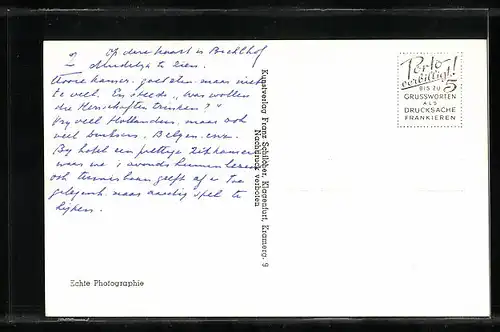 2 Op deze kaart is Bachlhof
duidelijk te zien.
Mooie kamer. goed eten maar niet
te veel. En steeds „Was wollen
die Herschaften trinken?"
Vrij veel Hollanders, maar ook
veel Duitsers. Belgen enz.
By hotel een prettige zitkamer
waar we 's avonds kunnen lezen
ook tennisbaan geeft af en toe
gelegenh. naar aardig spel te
kijken.
Echte Photographie
Kunstverlag Franz Schilcher, Klagenfurt, Kramerg. 9
Nachdruck verboten
Porto-
verbilligt!
BIS ZU 5
GRUSSWORTEN
ALS
DRUCKSACHE
FRANKIEREN